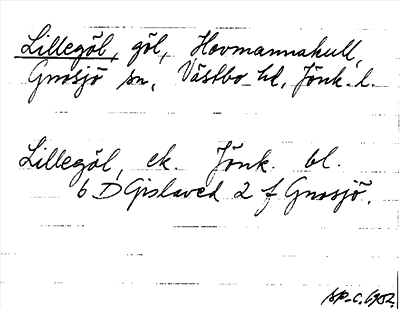 Lillegöl, göl, Hovmannahull,
Gnosjö sn, Västbo hd, Jönk. l.
Lillegöl, ek. Jönk. bl.
6 D Gislaved 2 f Gnosjö.
1952